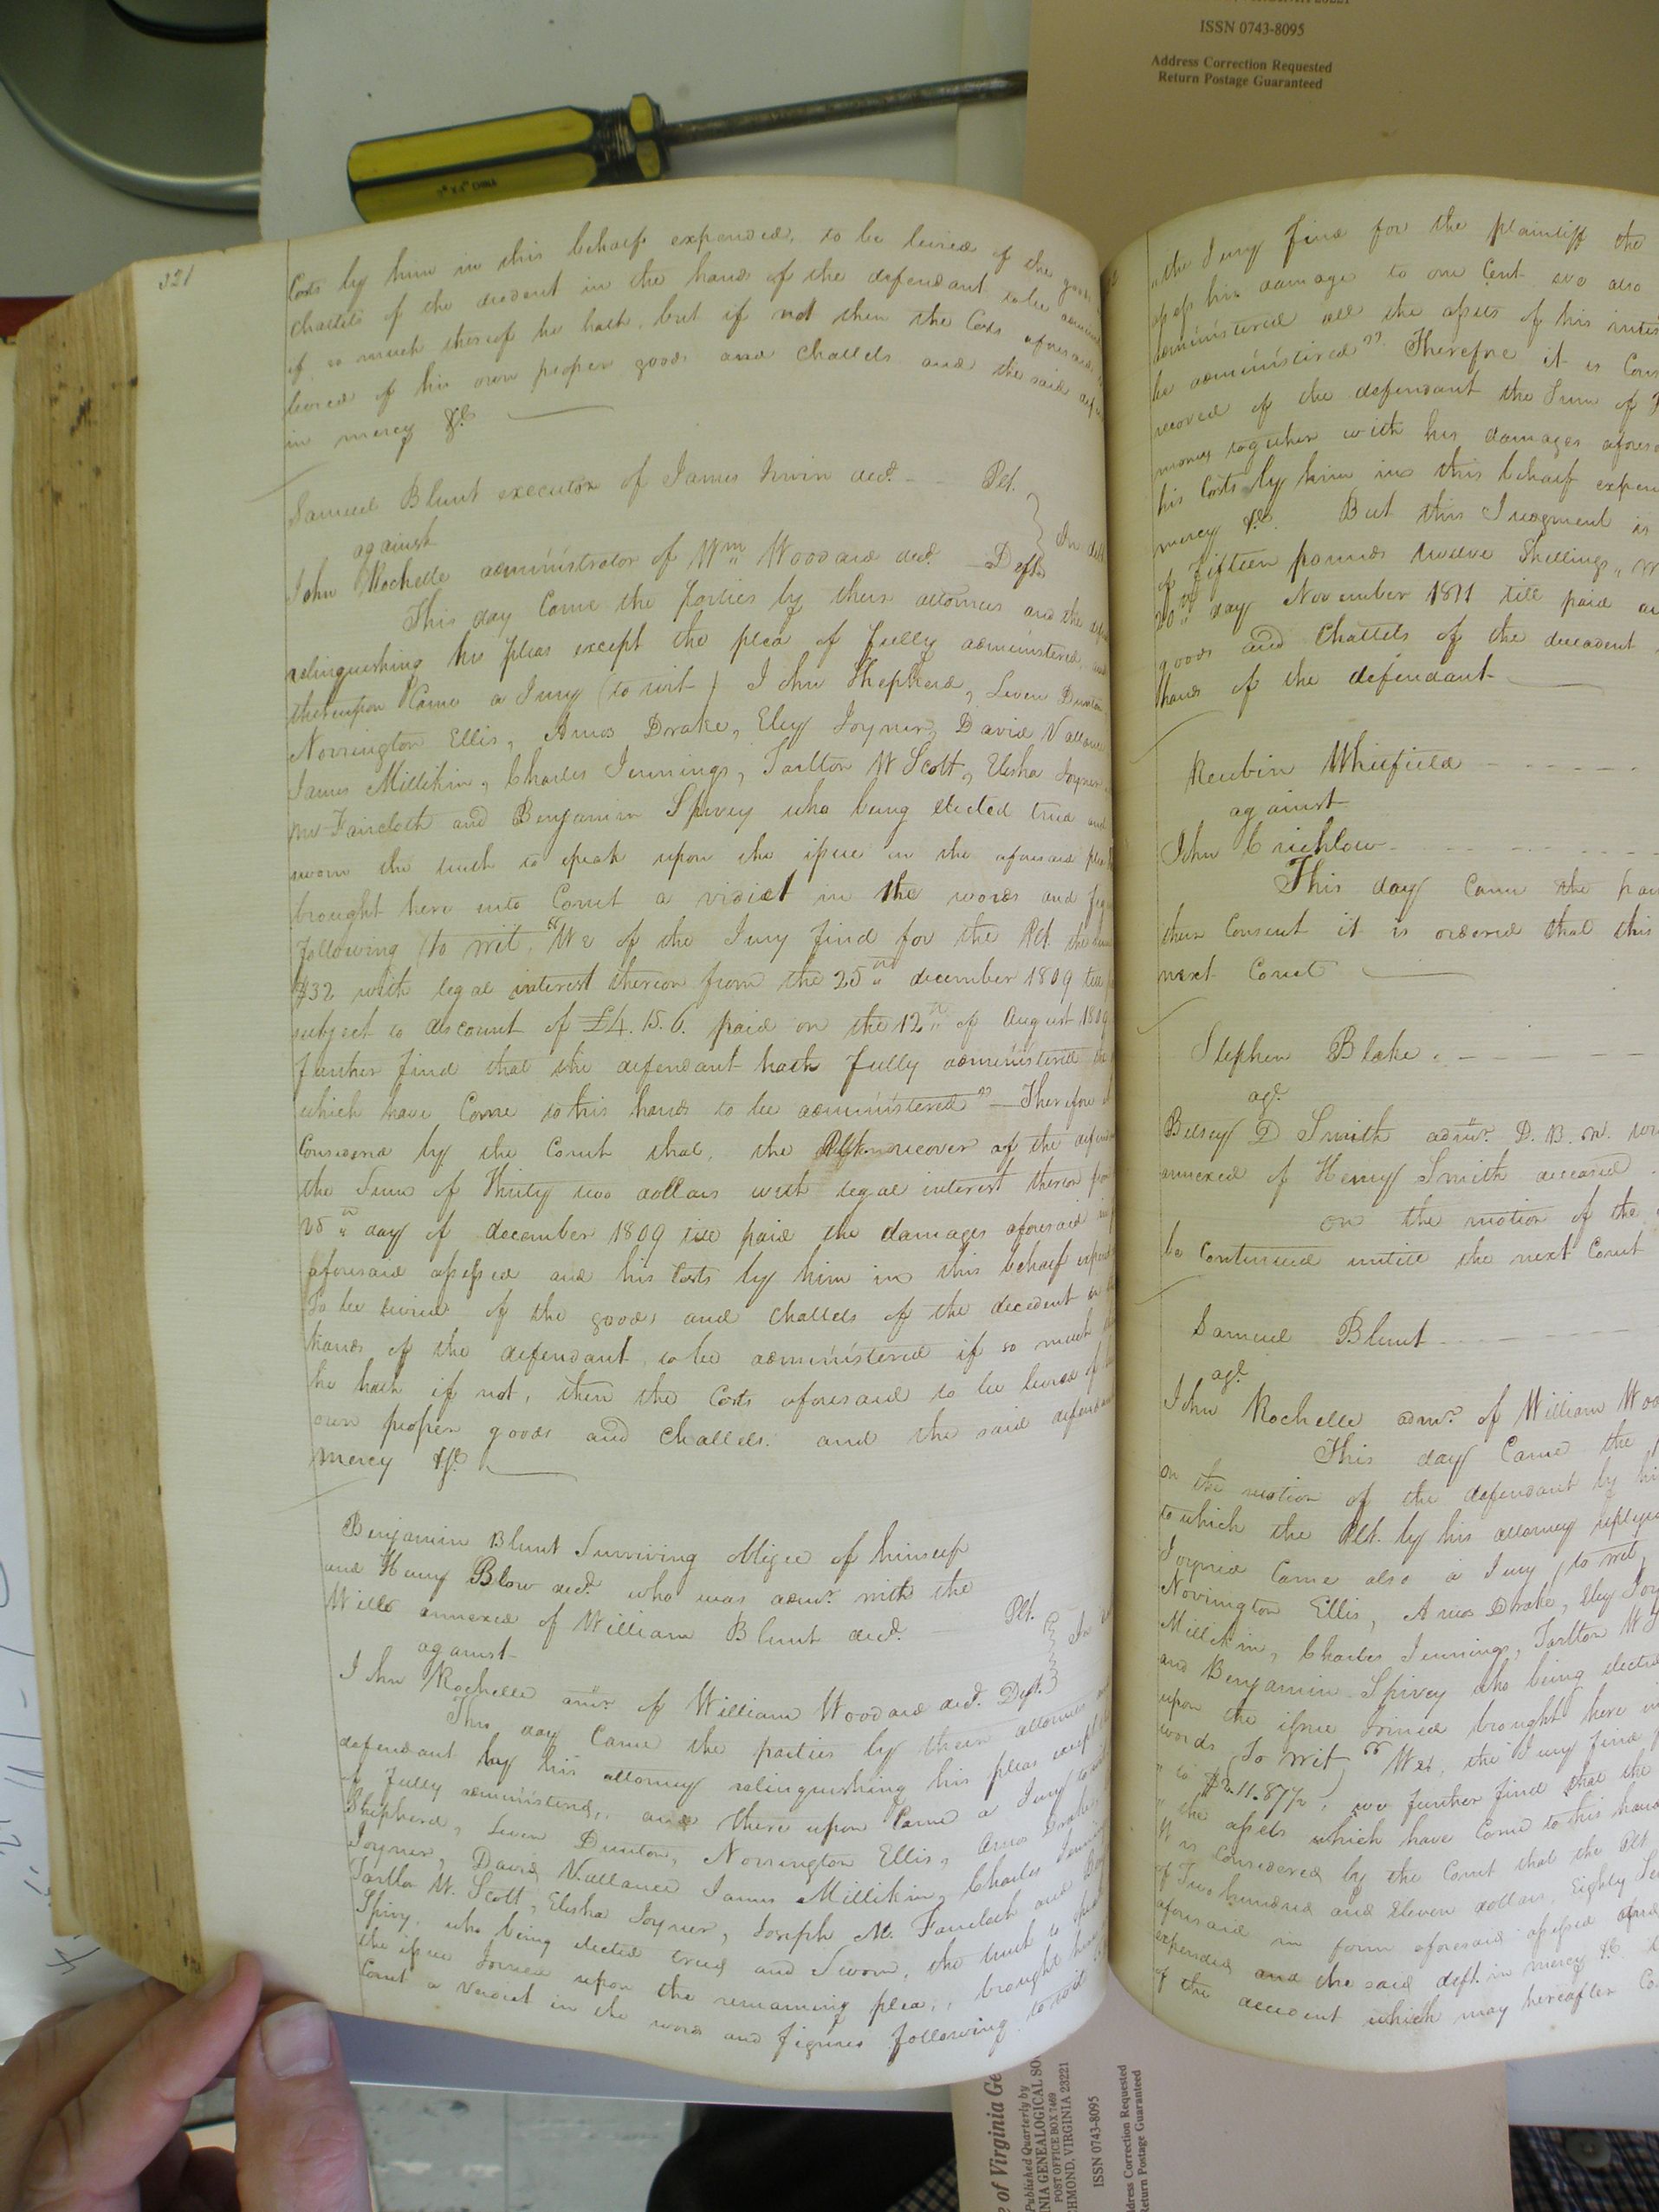 ISSN 0743-8095
Address Correction Requested
Return Postage Guaranteed
321
Costs by him in this behalf expended, to be levied of the goods
chattels of the decedent in the hands of the defendant to be
if so much thereof he hath, but if not then the Costs aforesaid
levied of his own proper goods and Chattels and the said
in mercy &c.
Samuel Blunt executor of James Irwin decd. Plt.
against
John Rochelle administrator of Wm Woodard decd. Deft.
This day Came the parties by their attornies and the
relinquishing his pleas except the plea of fully administered,
thereupon Came a Jury (to wit) John Shepherd, Leven Dunton
Norrington Ellis, Amos Drake, Eley Joyner, David Vallance
James Millikin, Charles Jennings, Tarlton W Scott, Elisha Joyner
M Faircloth and Benjamin Spivey who being elected tried and
sworn the truth to speak upon the issue in the aforesaid plea
brought here into Court a virdict in the words and
following (to wit, "We of the Jury find for the Plt. the
$32 with legal interest thereon from the 25th december 1809 till
subject to discount of £4.15.6. paid on the 12th of August 1809
further find that the defendant hath fully administered the
which have Come to his hands to be administered" Therefore
Considered by the Court that, the Plt. recover of the
the Sum of Thirty two dollars with legal interest thereon
25th day of december 1809 till paid the damages aforesaid in
aforesaid assessed and his Costs by him in this behalf
To be levied of the goods and Chattels of the decedent in the
hands of the defendant, to be administered if so much
he hath if not, then the Costs aforesaid to be levied of
own proper goods and Chattels. and the said defendant
mercy &c.
Benjamin Blunt Surviving Obligee of himself
and Henry Blow decd. who was admr. with the
Will annexed of William Blunt decd. Plt.
against
John Rochelle admr. of William Woodard decd. Deft.
This day Came the parties by their attornies
defendant by his attorney relinquishing his pleas except
of fully administered, and there upon Came a Jury to wit
Shepherd, Leven Dunton, Norrington Ellis, Amos Drake
Joyner, David Vallance James Millikin, Charles Jennings
Tarlton W. Scott, Elisha Joyner, Joseph M. Faircloth and
Spivy, who being elected tried and Sworn, the truth to speak
the issue Joined upon the remaining plea, brought here
Court a verdict in the words and figures following to wit
the Jury find for the plaintiff the
assess his damage to one Cent. we also
administered all the assets of his
be administered" Therefore it is
recover of the defendant the Sum of
money together with his damages
his Costs by him in this behalf
mercy &c. But this Judgment is
of fifteen pounds twelve Shillings,
20th day November 1811 till paid
goods and Chattels of the decedent
hands of the defendant
Reubin Whitfield
against
John Crichlow
This day Came the
their Consent it is ordered that this
next Court
Stephen Blake
agt.
Betsey D Smith admr. D. B. N.
annexed of Henry Smith deceased
on the motion of the
be Continued untill the next Court
Samuel Blunt
agt.
John Rochelle admr. of William
This day Came the
on the motion of the defendant by his
to which the Plt. by his attorney
Joyned Came also a Jury (to wit,
Norrington Ellis, Amos Drake, Eley
Millikin, Charles Jennings, Tarlton W
and Benjamin Spivey who being elected
upon the issue Joined brought here
words (To wit) "We, the Jury find
we further find that the
the assets which have Come to his hands
it is Considered by the Court that the Plt
of Two hundred and Eleven dollars, Eighty
aforesaid in form aforesaid assessed and
expended and the said deft. in mercy &c
of the decedent which may hereafter
of Virginia
Published Quarterly by
GENEALOGICAL
POST OFFICE BOX 7469
RICHMOND, VIRGINIA 23221
ISSN 0743-8095
Address Correction Requested
Return Postage Guaranteed